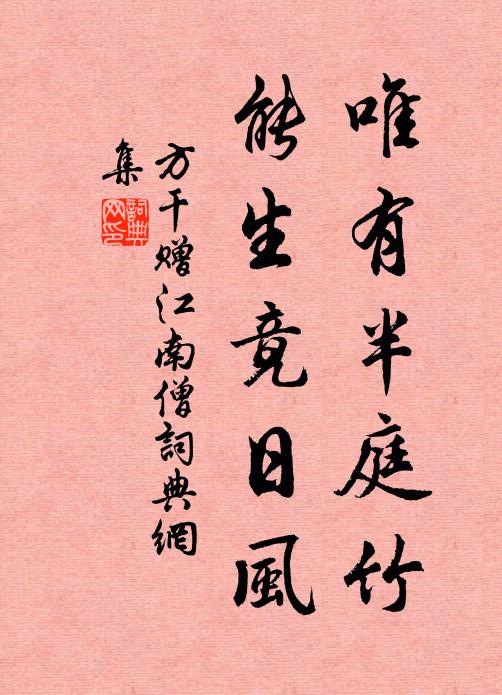 唯有半庭竹
能生竟日風
方干贈江南僧詞典網
集
詞典
网印